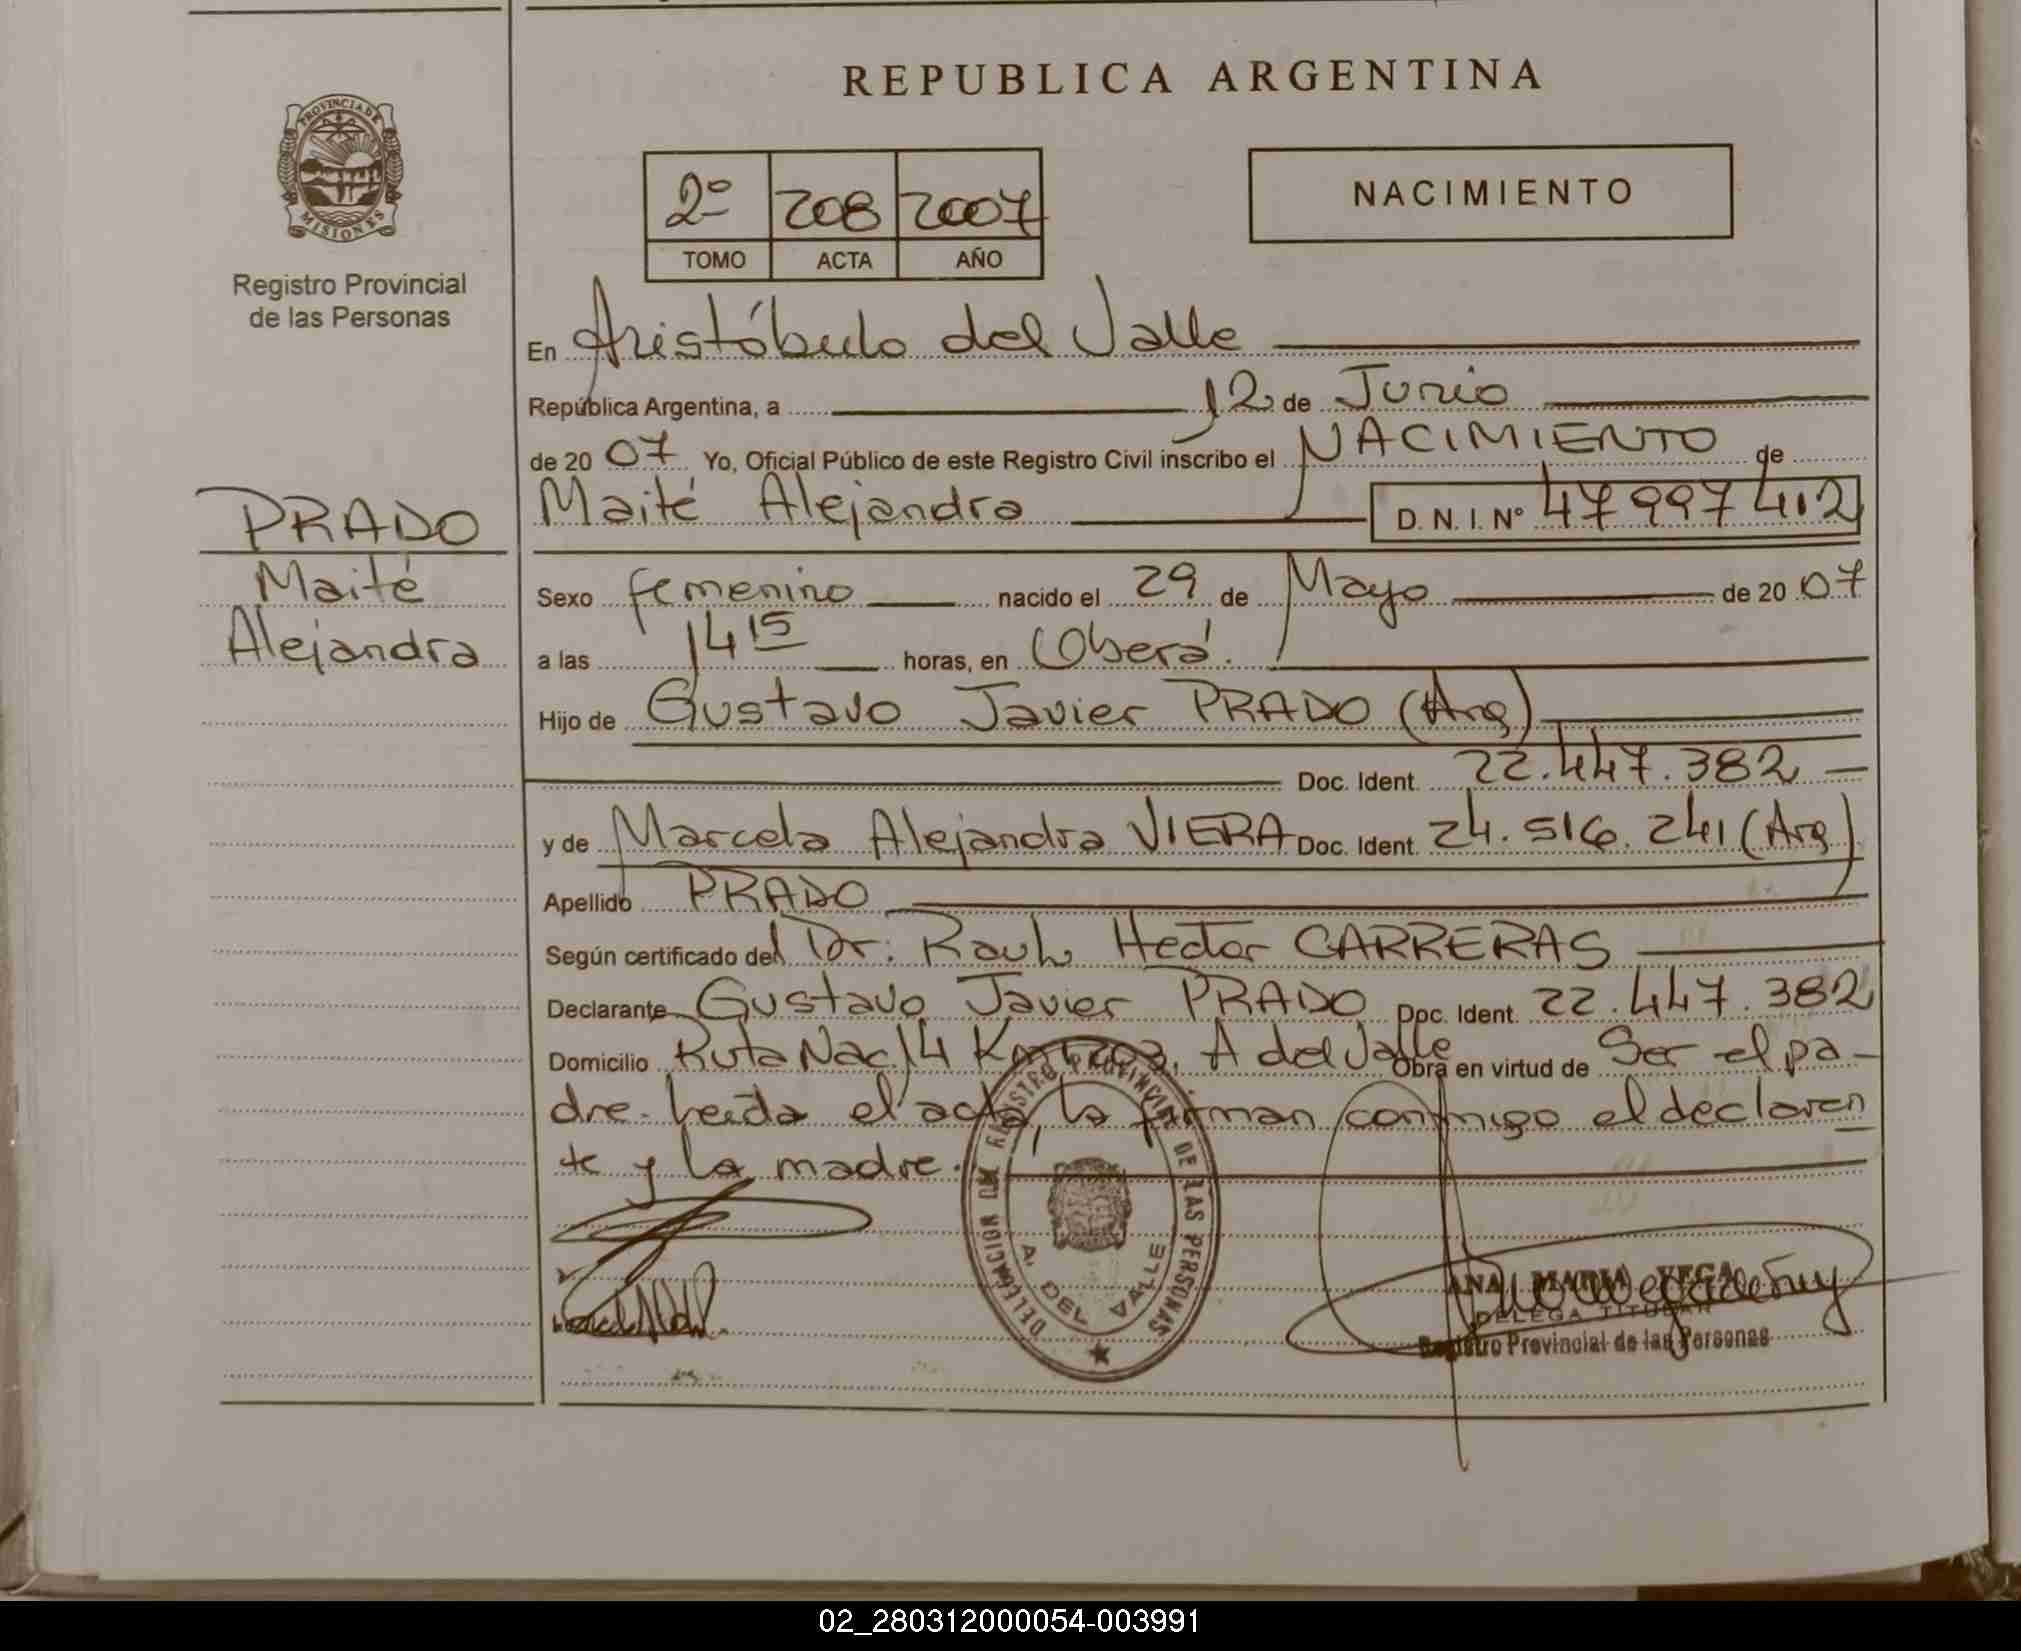 REPUBLICA ARGENTINA
PROVINCIA DE MISIONES
Registro Provincial
de las Personas
2º 208 2007
TOMO ACTA AÑO
NACIMIENTO
En Aristóbulo del Valle
República Argentina, a 12 de Junio
de 2007 Yo, Oficial Público de este Registro Civil inscribo el NACIMIENTO de
Maité Alejandra D. N. I. Nº 47997412
PRADO
Maité
Alejandra
Sexo femenino nacido el 29 de Mayo de 2007
a las 14 15 horas, en Oberá.
Hijo de Gustavo Javier PRADO (Arg)
Doc. Ident. 22.447.382
y de Marcela Alejandra VIERA Doc. Ident. 24.516.241 (Arg)
Apellido PRADO
Según certificado del Dr. Raul Hector CARRERAS
Declarante Gustavo Javier PRADO Doc. Ident. 22.447.382
Domicilio Ruta Nac 14 Km A del Valle Obra en virtud de Ser el pa-
dre. Leida el acta, la firman conmigo el declaran
te y la madre.
DELEGACION DEL REGISTRO PROVINCIAL DE LAS PERSONAS
A. DEL VALLE
ANA MARIA VEGA
DELEGA TITULAR
Registro Provincial de las Personas
02_280312000054-003991